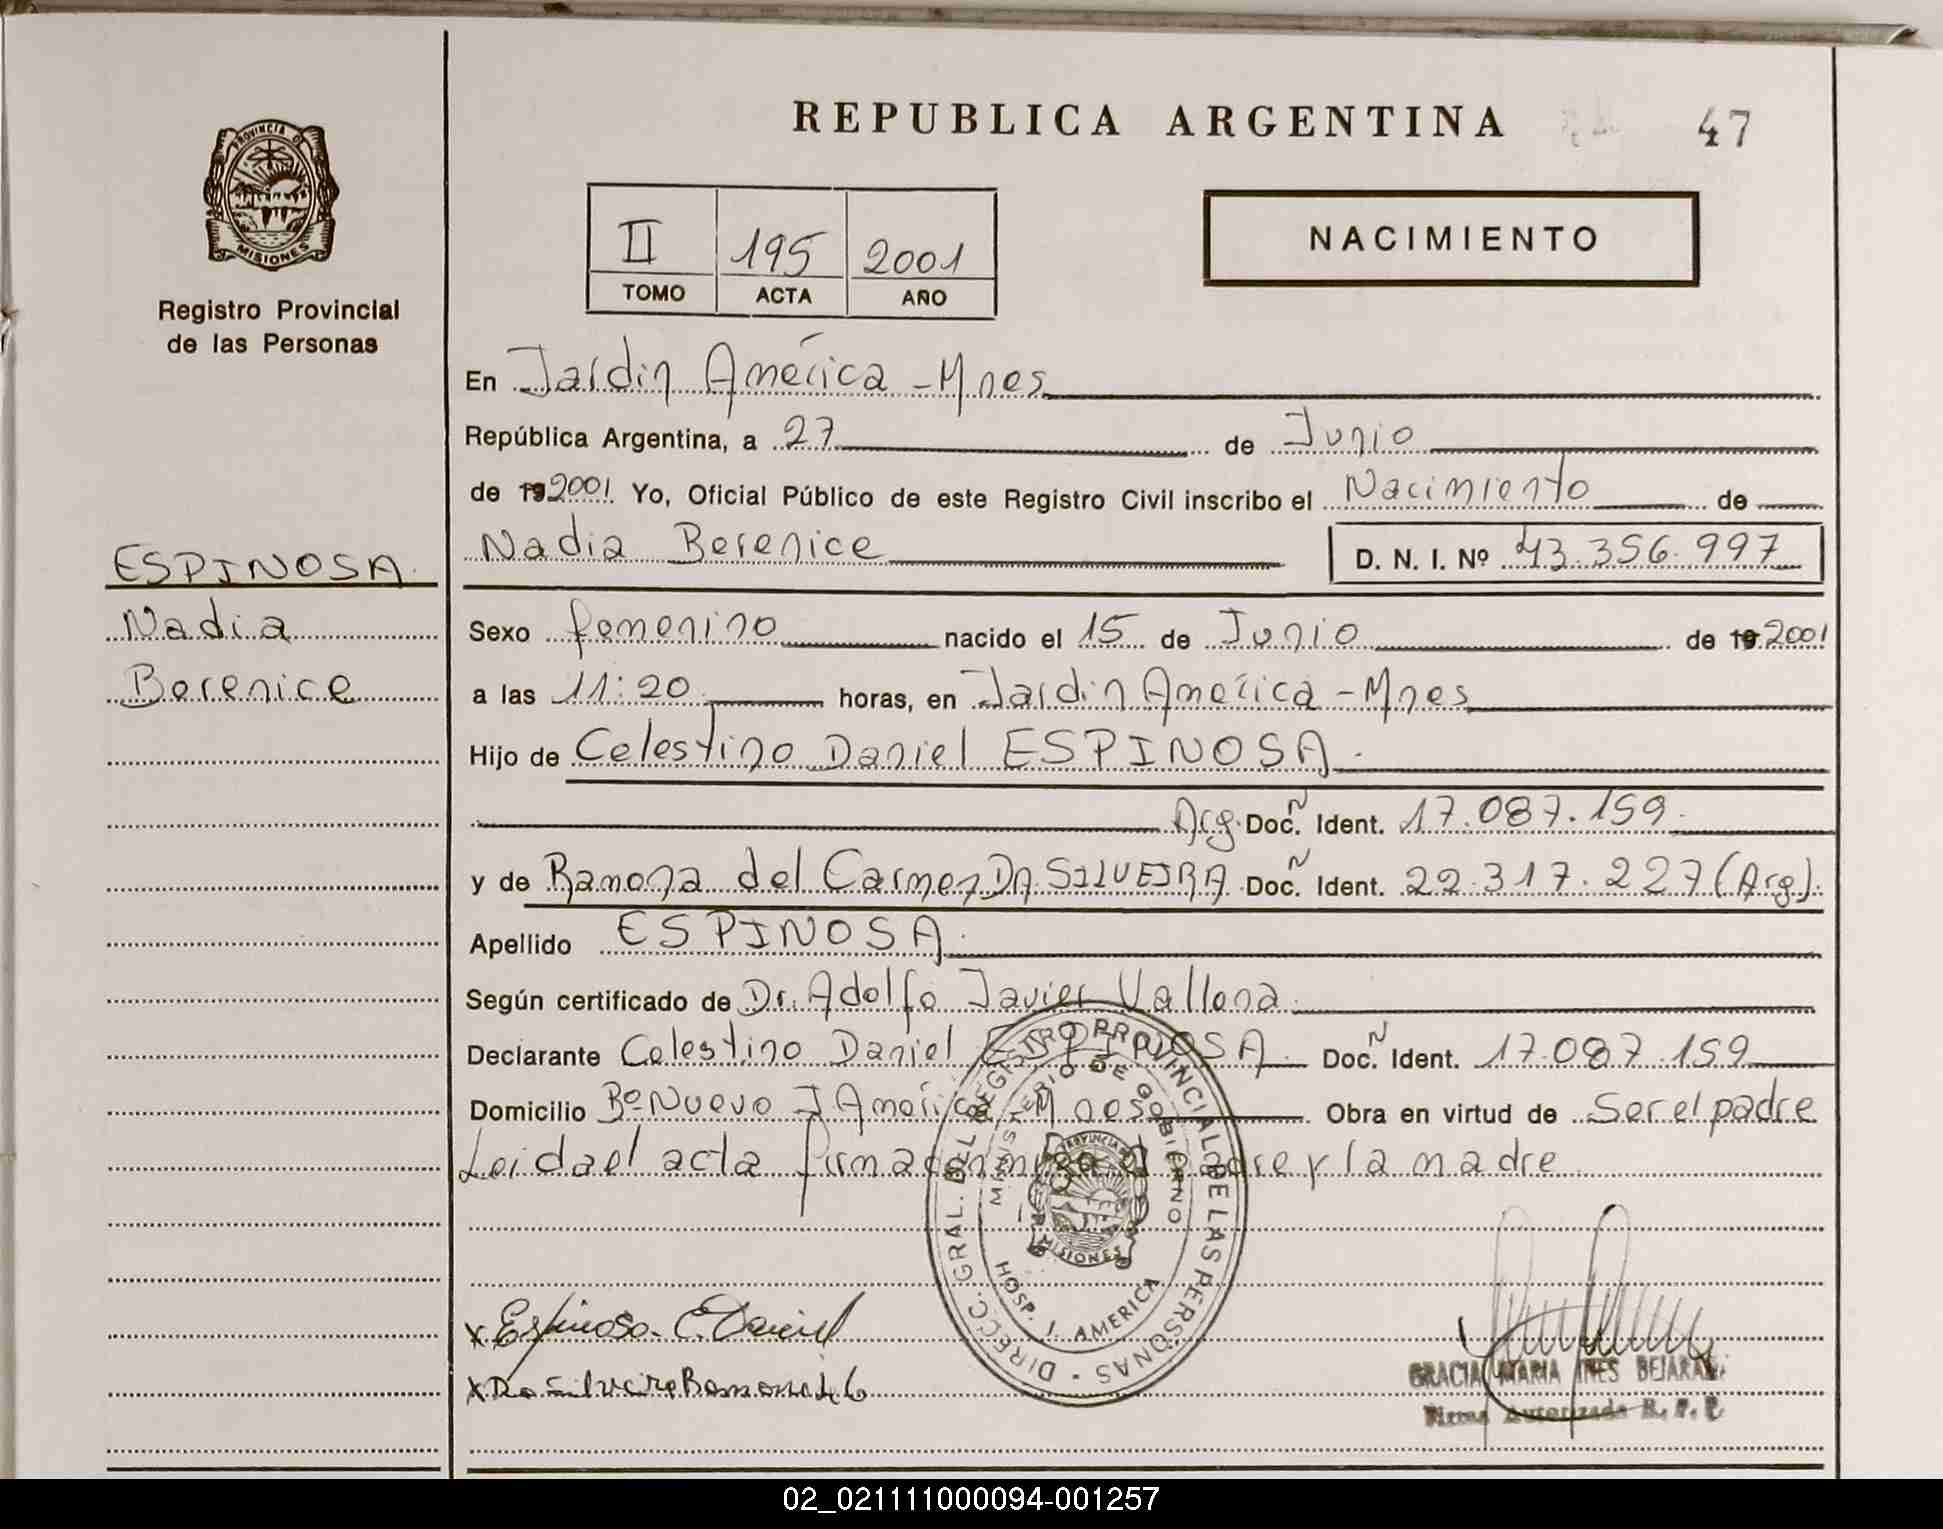 REPUBLICA ARGENTINA
47
PROVINCIA DE
MISIONES
Registro Provincial
de las Personas
II 195 2001
TOMO ACTA AÑO
NACIMIENTO
En Jardín América - Mnes
República Argentina, a 27 de Junio
de 19 2001. Yo, Oficial Público de este Registro Civil inscribo el Nacimiento de
Nadia Berenice D. N. I. Nº 43.356.997
ESPINOSA.
Nadia
Berenice
Sexo femenino nacido el 15 de Junio de 19 2001
a las 11:20 horas, en Jardin América - Mnes
Hijo de Celestino Daniel ESPINOSA.
Arg. Doc. Ñ Ident. 17.087.159.
y de Ramona del Carmen DA SILVEIRA Doc. Ñ Ident. 22.317.227 (Arg).
Apellido ESPINOSA.
Según certificado de Dr. Adolfo Javier Vallena.
Declarante Celestino Daniel ESPINOSA. Doc. Ñ Ident. 17.087.159
Domicilio Bº Nuevo J América Mnes Obra en virtud de Ser el padre
Leida el acta firman conmigo el padre y la madre
DIRECC. GRAL. DEL REGISTRO PROVINCIAL DE LAS PERSONAS
MINISTERIO DE GOBIERNO
PROVINCIA DE
MISIONES
HOSP. J. AMERICA
x Espinosa C. Daniel
x Da Silveira Ramona del C
GRACIA MARIA INES BEJARA
Firma Autorizada R. P. P.
02_021111000094-001257